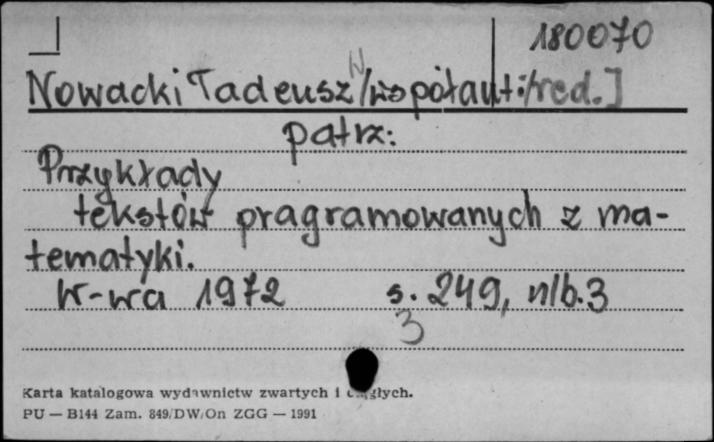 180070
Nowacki Tadeusz W /współaut:/red.]
patrz:
Przykłady
tekstów pragramowanych z ma-
tematyki.
W-wa 1972 s. 249, nlb.3
3
Karta katalogowa wydawnictw zwartych i ciągłych.
PU — B144 Zam. 849/DW/On ZGG — 1991